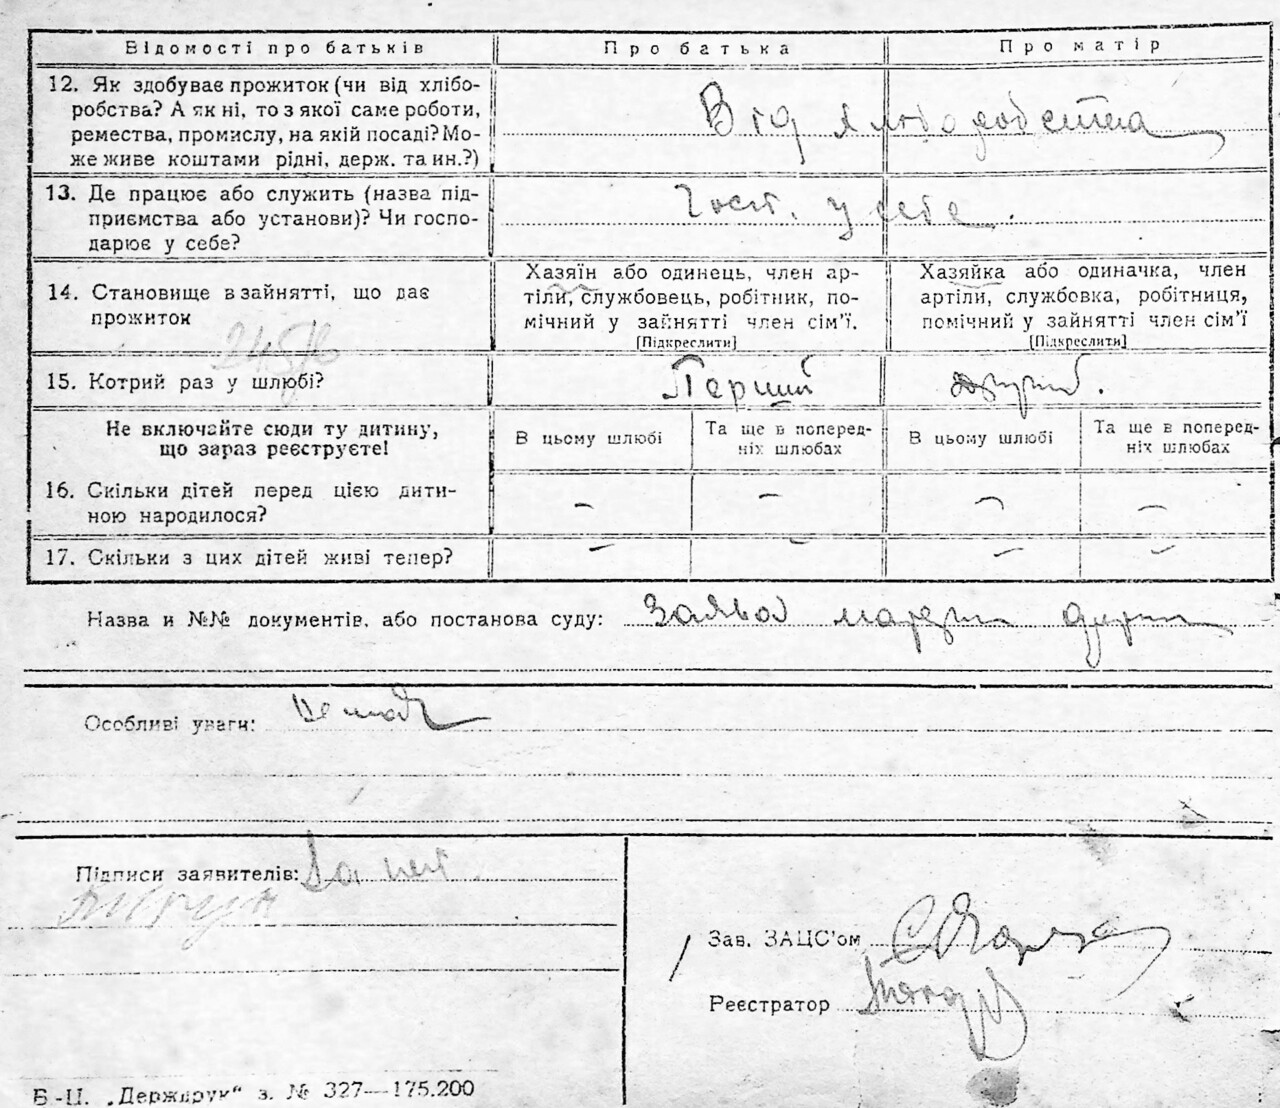 Відомості про батьків Про батька Про матір
12. Як здобуває прожиток (чи від хлібо-
робства? А як ні, то з якої саме роботи,
ремества, промислу, на якій посаді? Мо-
же живе коштами рідні, держ. та ин.?)
Від хліборобства
13. Де працює або служить (назва під-
приємства або установи)? Чи госпо-
дарює у себе?
Госп. у себе.
14. Становище в зайнятті, що дає
прожиток
Хазяїн або одинець, член ар-
тіли, службовець, робітник, по-
мічний у зайнятті член сім'ї.
[Підкреслити]
Хазяйка або одиначка, член
артіли, службовка, робітниця,
помічний у зайнятті член сім'ї
[Підкреслити]
15. Котрий раз у шлюбі? Перший Другий.
Не включайте сюди ту дитину,
що зараз реєструєте!
В цьому шлюбі
Та ще в поперед-
ніх шлюбах
В цьому шлюбі
Та ще в поперед-
ніх шлюбах
16. Скільки дітей перед цією дити-
ною народилося?
– – – –
17. Скільки з цих дітей живі тепер?
– – – –
Назва и №№ документів, або постанова суду: Заява
Особливі уваги:
Підписи заявителів: За неп.
Зав. ЗАЦС'ом
Реєстратор
Б-Ц. „Держдрук“ з. № 327—175.200